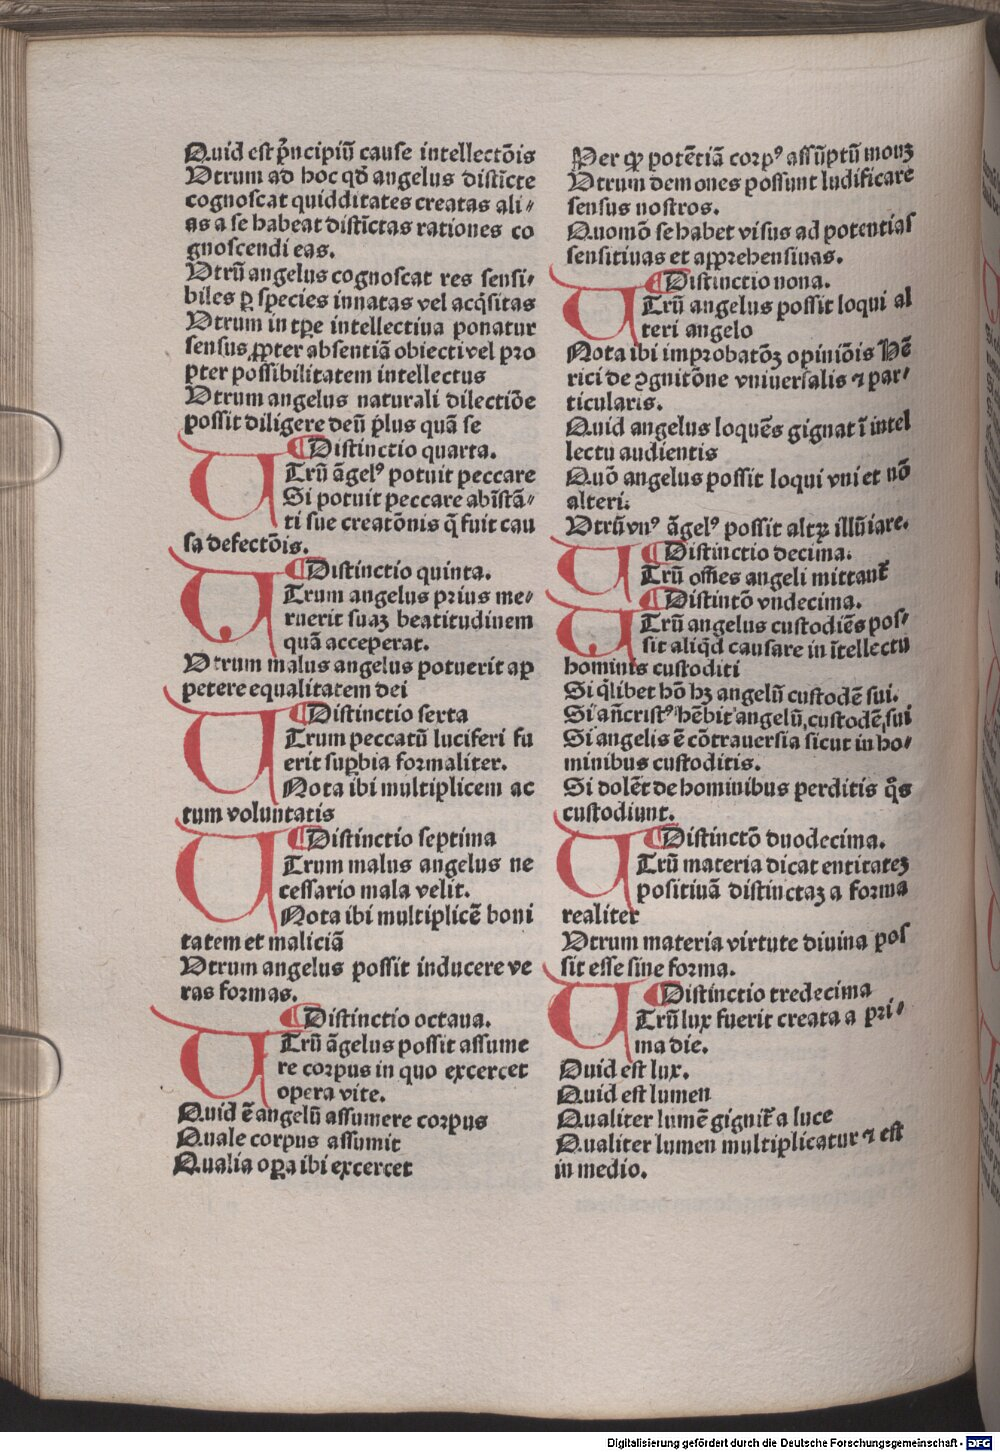 Quid est p̃ncipiũ cause intellectõis
Vtrum ad hoc qd̃ angelus distĩcte
cognoscat quidditates creatas ali⸗
as a se habeat distĩctas rationes co
gnoscendi eas.
Vtrũ angelus cognoscat res sensi⸗
biles ꝑ species innatas vel acq̃sitas
Vtrum in tꝑe intellectiua ponatur
sensus ꝓpter absentiã obiecti vel pro
pter possibilitatem intellectus
Vtrum angelus naturali dilectiõe
possit diligere deũ p̃lus quã se
¶ Distinctio quarta.
UTrũ ãgelꝰ potuit peccare
Si potuit peccare ab ĩstã⸗
ti sue creatõnis q̃ fuit cau
sa defectõis.
¶ Distinctio quinta.
UTrum angelus prius me⸗
ruerit suaꝫ beatitudinem
quã acceperat.
Vtrum malus angelus potuerit ap
petere equalitatem dei
¶ Distinctio sexta
UTrum peccatũ luciferi fu
erit suꝑbia formaliter.
Nota ibi multiplicem ac
tum voluntatis
¶ Distinctio septima
UTrum malus angelus ne
cessario mala velit.
Nota ibi multiplicẽ boni
tatem et maliciã
Vtrum angelus possit inducere ve
ras formas.
¶ Distinctio octaua.
UTrũ ãgelus possit assume
re corpus in quo excercet
opera vite.
Quid ẽ angelũ assumere corpus
Quale corpus assumit
Qualia oꝑa ibi excercet
Per quã potẽtiã corpꝰ assũptũ mouꝫ
Vtrum demones possunt ludificare
sensus nostros.
Quomõ se habet visus ad potentias
sensitiuas et apprehensiuas.
¶ Distinctio nona.
UTrũ angelus possit loqui al
teri angelo
Nota ibi improbatõꝫ opiniõis Hẽ
rici de ꝯgnitõne vniuersalis ⁊ par⸗
ticularis.
Quid angelus loquẽs gignat ĩ intel
lectu audientis
Quõ angelus possit loqui vni et nõ
alteri.
Vtrũ vnꝰ ãgelꝰ possit altꝝ illũiare.
¶ Distinctio decima.
UTrũ om̃es angeli mittant᷑
¶ Distinctõ vndecima.
UTrũ angelus custodiẽs pos⸗
sit aliq̃d causare in ĩtellectu
hominis custoditi
Si q̃libet hõ hꝫ angelũ custodẽ sui.
Si añcristꝰ hẽbit angelũ custodẽ sui
Si angelis ẽ cõtrauersia sicut in ho⸗
minibus custoditis.
Si dolẽt de hominibus perditis q̃s
custodiunt.
¶ Distinctõ duodecima.
UTrũ materia dicat entitateꝫ
positiuã distinctaꝫ a forma
realiter
Vtrum materia virtute diuina pos
sit esse sine forma.
¶ Distinctio tredecima
UTrũ lux fuerit creata a pri⸗
ma die.
Quid est lux.
Quid est lumen
Qualiter lumẽ gignit᷑ a luce
Qualiter lumen multiplicatur ⁊ est
in medio.
Digitalisierung gefördert durch die Deutsche Forschungsgemeinschaft - DFG